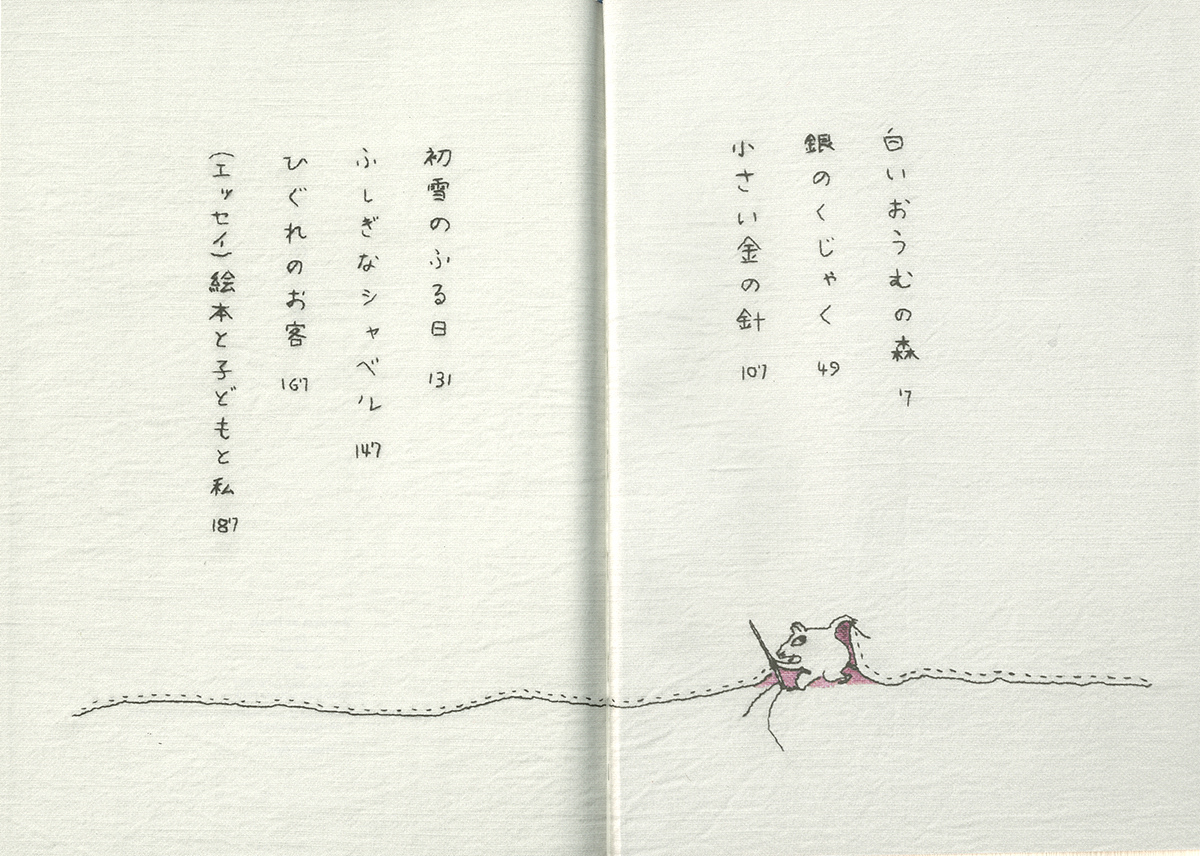 白いおうむの森 7
銀のくじゃく 49
小さい金の針 107
初雪のふる日 131
ふしぎなシャベル 147
ひぐれのお客 167
(エッセイ)絵本と子どもと私 187